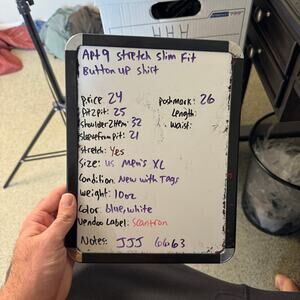 Apt 9 stretch slim Fit
Button up shirt
price: 24
poshmark: 26
pit2pit: 25
Length:
shoulder2Hem: 32
waist:
sleevefrompit: 21
stretch: Yes
Size: US Men's XL
Condition: New with Tags
Weight: 10oz
Color: blue, white
Vendoo Label: Scantron
Notes: JJJ 6663